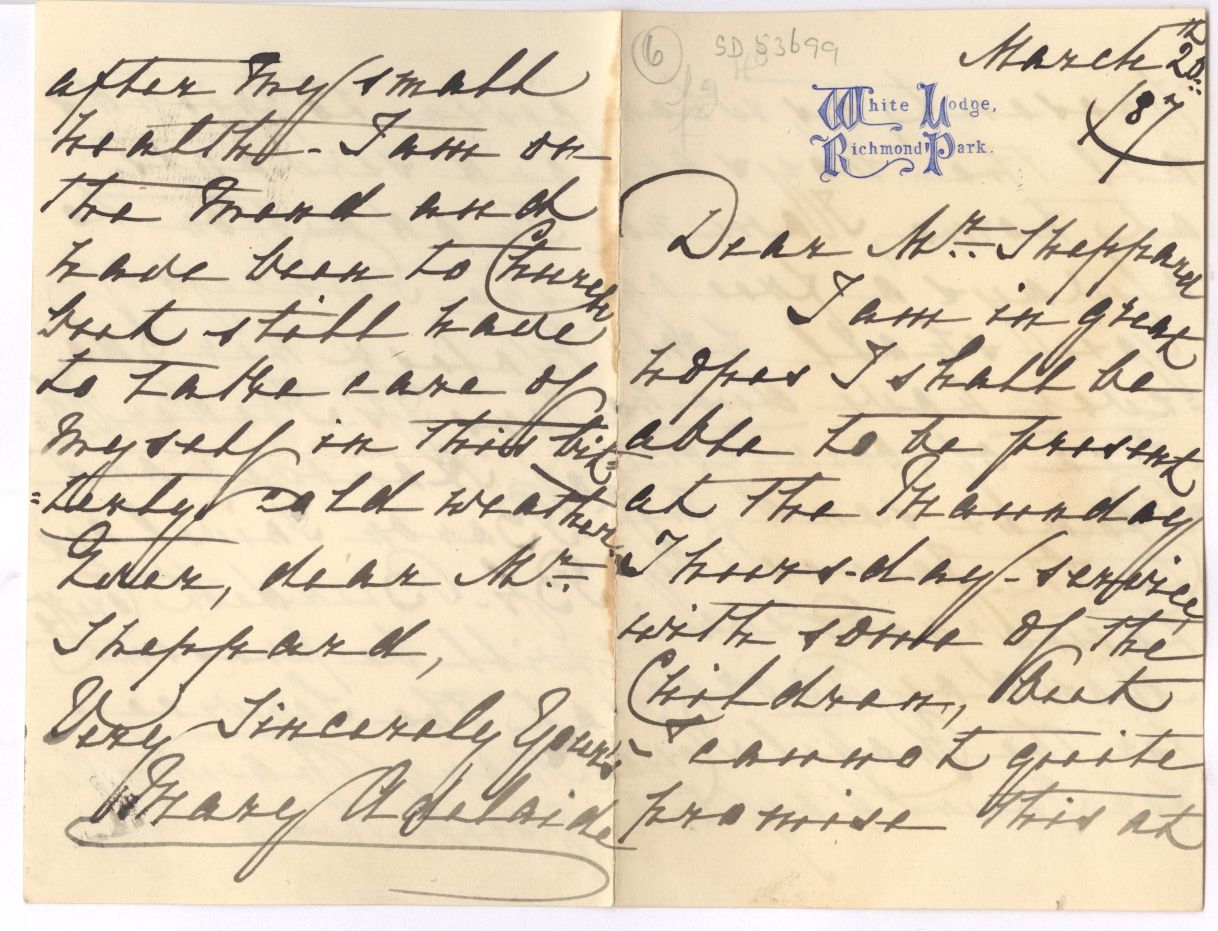 6
SD 53699
March 20th..
/87
White Lodge,
Richmond Park.
Dear Mr.. Sheppard
I am in great
hopes I shall be
able to be present
at the Maunday
Thurs-day-service
with some of the
Children, but
I cannot quite
promise this at
after my small
health. I am on
the mend and
have been to Church
but still have
to take care of
myself in this bit=
=terly cold weather.
Ever, dear Mr..
Sheppard,
Very Sincerely Yours
Mary Adelaide